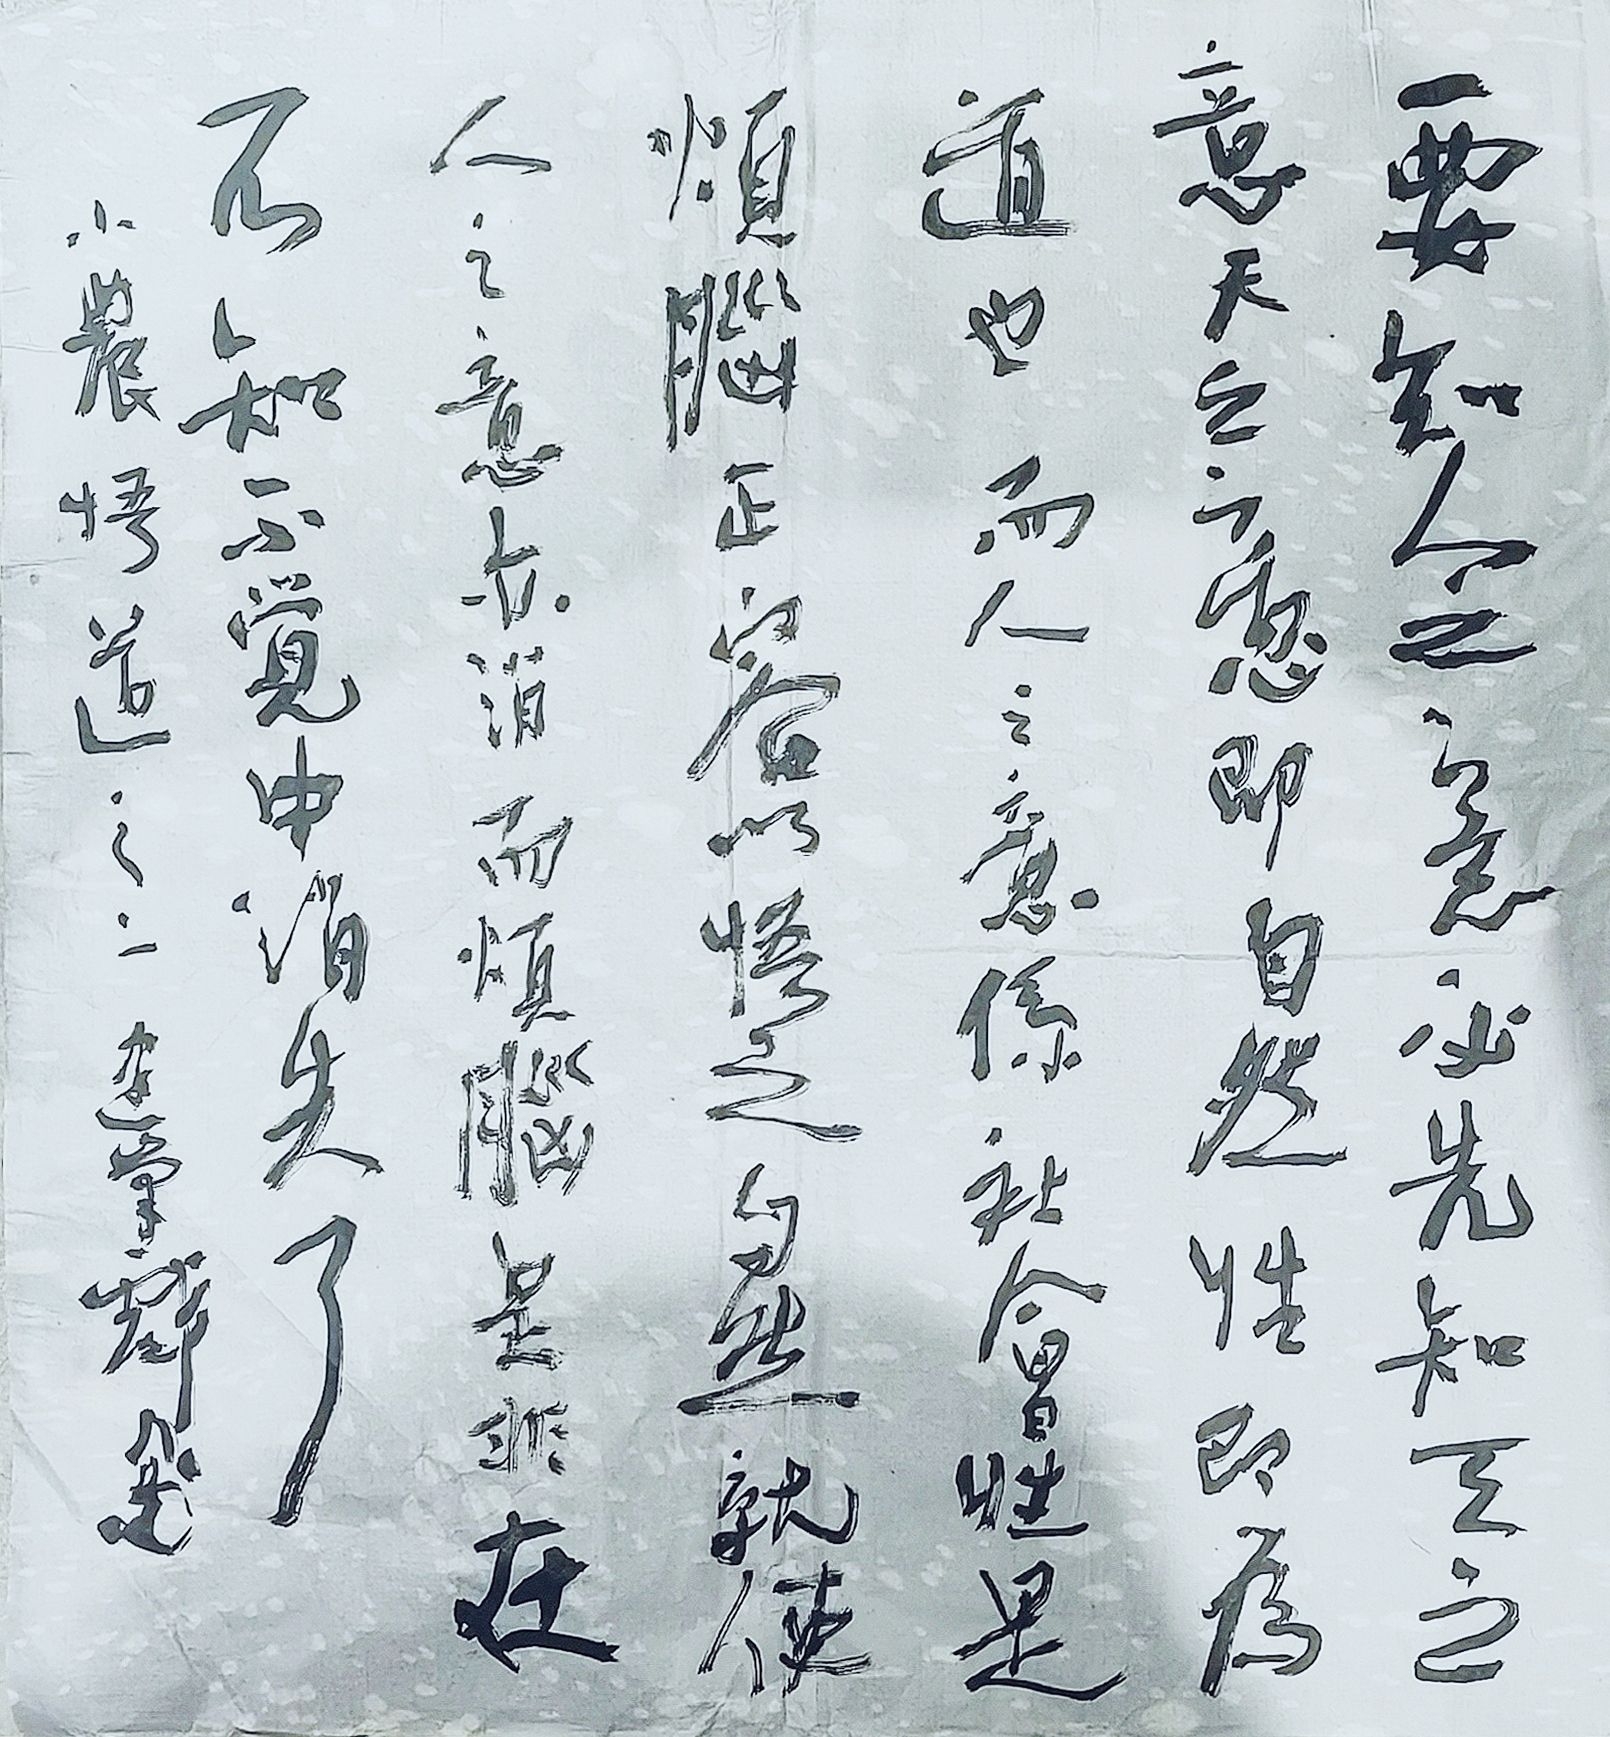 要知人之意必先知天之
意天之意即自然性即為
道也而人之意係社會性是
煩腦正容以悟之自然就使
人之意亦消而煩腦是非在
不知不覺中消失了
小農悟道之二